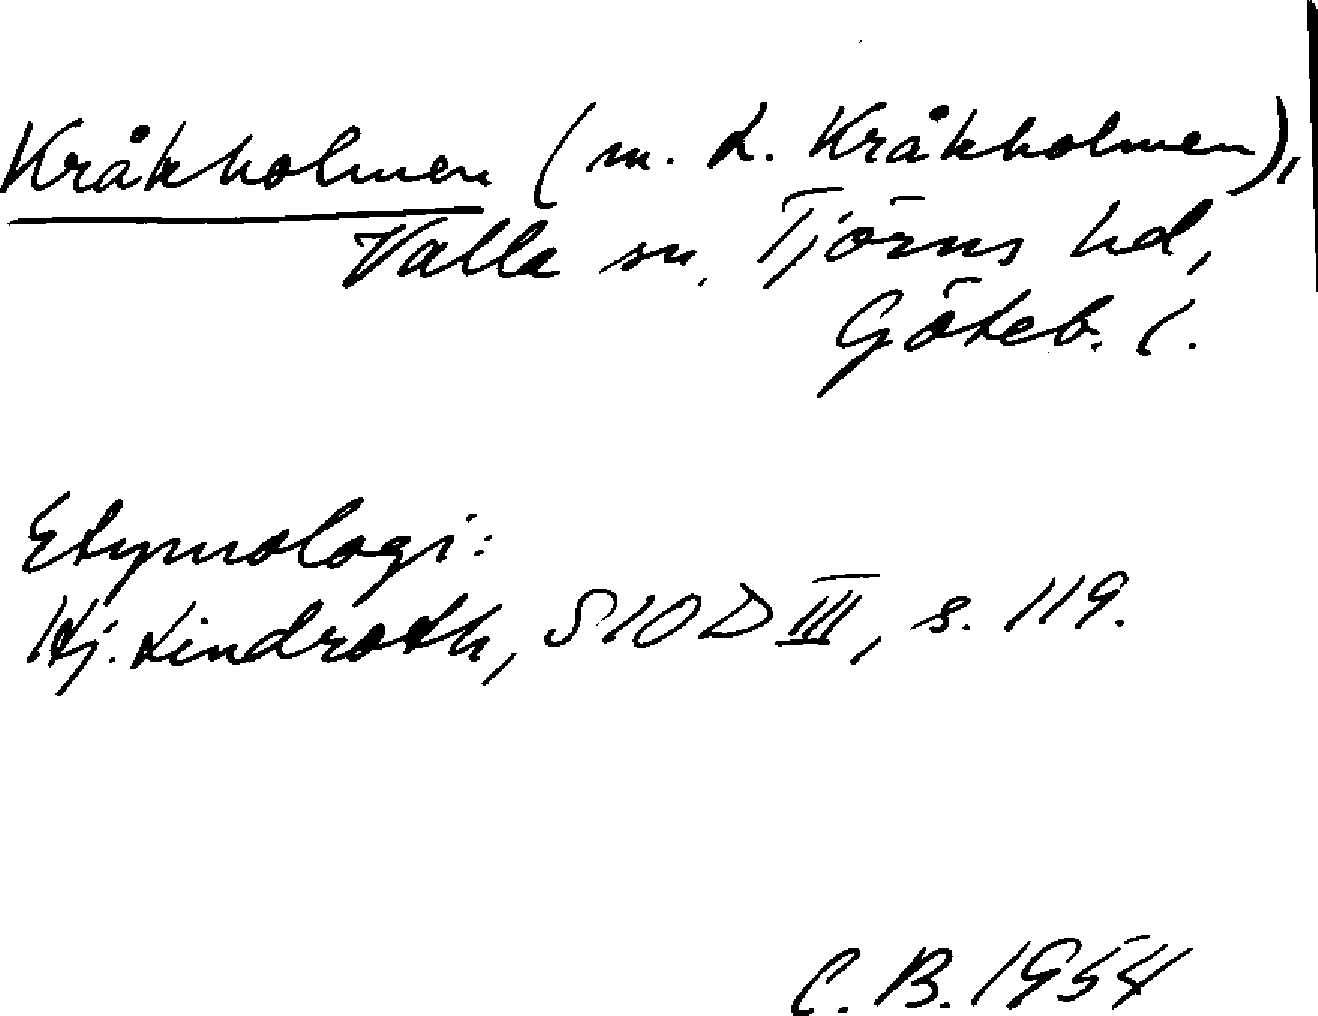 Kråkholmen (m. L. Kråkholmen),
Valla sn, Tjörns hd,
Göteb. l.
Etymologi:
Hj. Lindroth, SIOD III, s. 119.
C. B. 1954